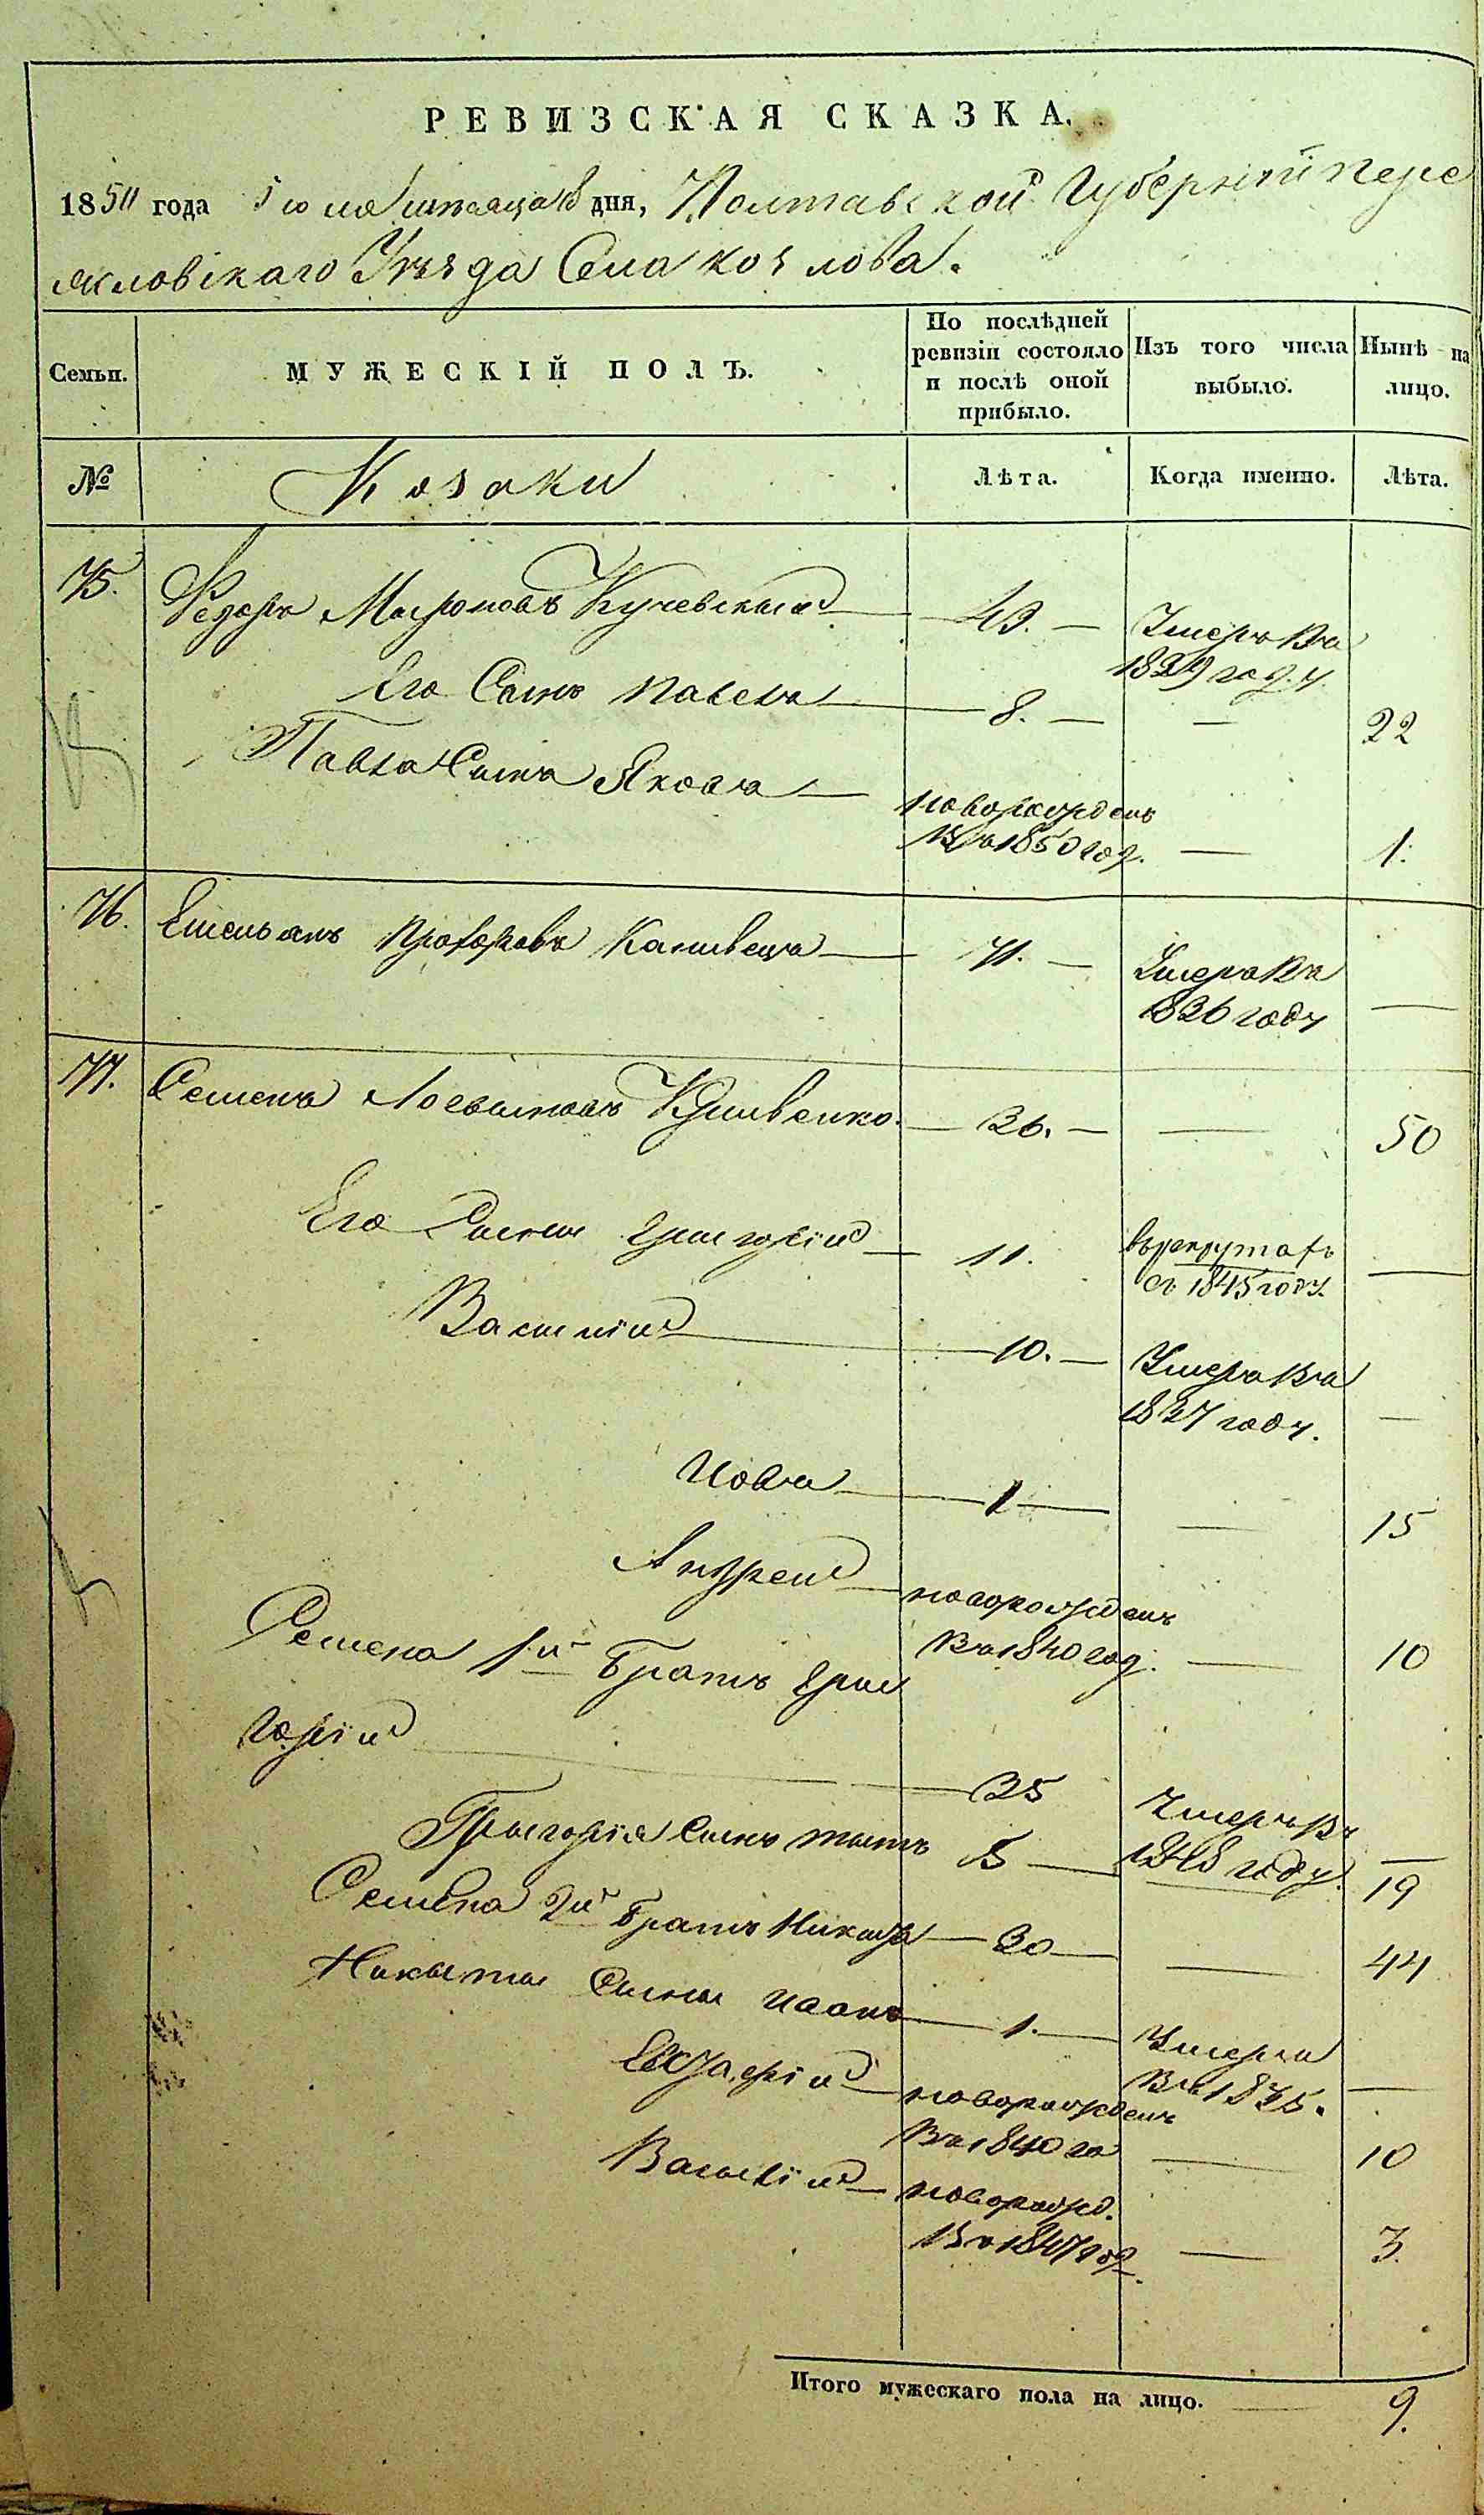 РЕВИЗСКАЯ СКАЗКА.
1850 года дня, Полтавской Губерніи Пере
яславскаго Уезда Села Козлова.
Семьи.
МУЖЕСКІЙ ПОЛЪ.
По послѣдней ревизіи состояло и послѣ оной прибыло.
Изъ того числа выбыло.
Нынѣ на лицо.
№
Козаки
Лѣта.
Когда именно.
Лѣта.
75. Федоръ Мироновъ Кучевскый 43. Умеръ въ
1839 году.
Его Сынъ Павелъ 8. — — 22
Павла Сынъ Яковъ новорожденъ
въ 1850 год. — 1.
76. Емельянъ Прохоровъ Канивецъ 71. — Умеръ въ
1836 году —
77. Семенъ Логвиновъ 36. — — 50
Его Сыны Григорій 11. въ рекрутахъ
съ 1845 году. —
Василій 10. — Умеръ въ
1837 году. —
Іовъ 1 — — 15
Андрей новорожденъ
въ 1840 год. — 10
Семена 1й Братъ Гри
горій 35 Умеръ въ
1848 году. —
Григорія Сынъ Титъ 5 — 19
Семена 2й Братъ Никита 30 — — 44
Никиты Сыны Иванъ 1. — Умеръ
въ 1835. —
новорожденъ
въ 1840 го — 10
Василій новорожд.
въ 1847 год. — 3.
Итого мужескаго пола на лицо. 9.